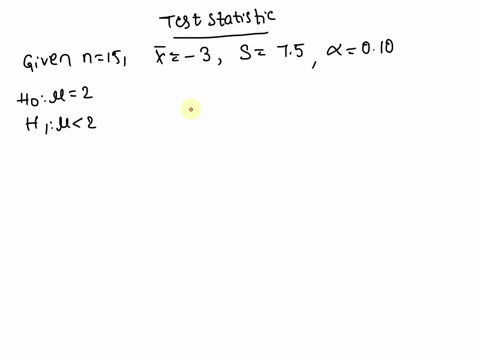 Test statistic
Given n=15, x̄=-3, S=7.5, α=0.10
H₀:μ=2
H₁:μ<2